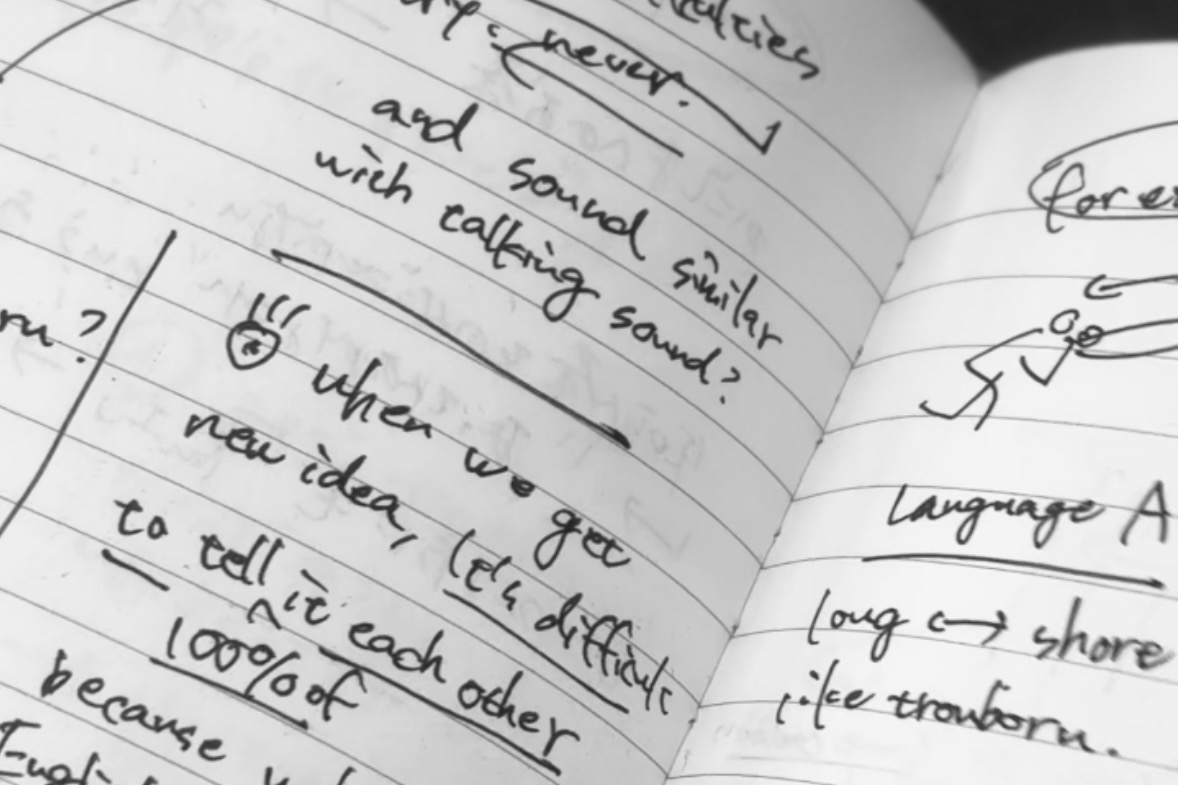 never.
and sound similar
with talking sound?
when we get
new idea, It's difficult
to tell it each other
100% of
because
ru?
Language A
long ↔ shore
like trouboru.